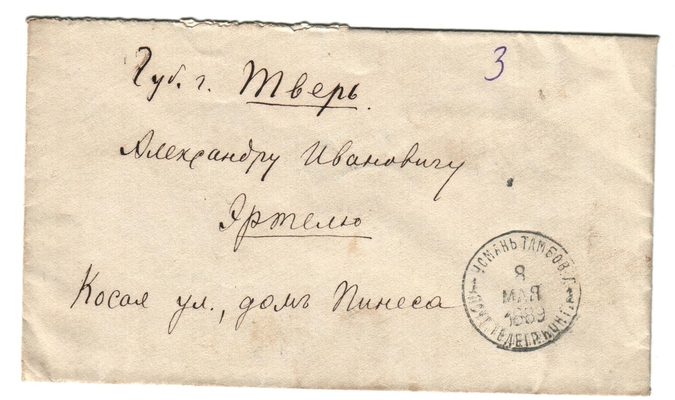 3
Губ. г. Тверь.
Александру Ивановичу
Эртелю
Косая ул., домъ Пинеса
УСМАНЬ ТАМБОВ. Г.
8
МАЯ
1889
ПОЧТ. ТЕЛЕГР. КОНТ.